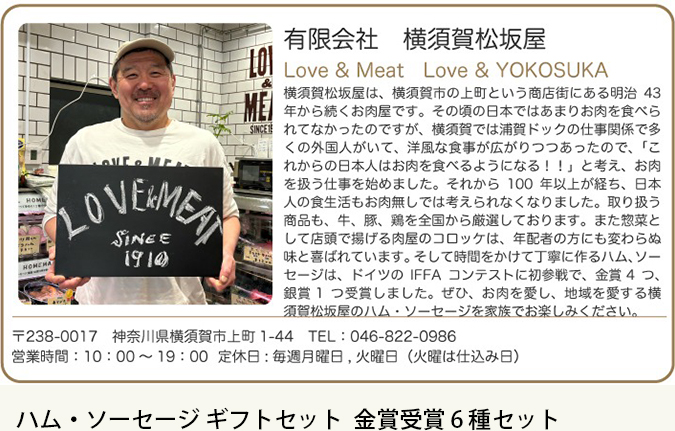 有限会社　横須賀松坂屋
Love & Meat　Love & YOKOSUKA
横須賀松坂屋は、横須賀市の上町という商店街にある明治 43
年から続くお肉屋です。その頃の日本ではあまりお肉を食べら
れてなかったのですが、横須賀では浦賀ドックの仕事関係で多
くの外国人がいて、洋風な食事が広がりつつあったので、「こ
れからの日本人はお肉を食べるようになる！！」と考え、お肉
を扱う仕事を始めました。それから 100 年以上が経ち、日本
人の食生活もお肉無しでは考えられなくなりました。取り扱う
商品も、牛、豚、鶏を全国から厳選しております。また惣菜と
して店頭で揚げる肉屋のコロッケは、年配者の方にも変わらぬ
味と喜ばれています。そして時間をかけて丁寧に作るハム、ソー
セージは、ドイツの IFFA コンテストに初参戦で、金賞 4 つ、
銀賞 1 つ受賞しました。ぜひ、お肉を愛し、地域を愛する横
須賀松坂屋のハム・ソーセージを家族でお楽しみください。
LOVE
&
MEAT
LOVE & MEAT
LOVE&MEAT
SINCE
1910
〒238-0017　神奈川県横須賀市上町 1-44　TEL：046-822-0986
営業時間：10：00 〜 19：00  定休日 : 毎週月曜日 , 火曜日（火曜は仕込み日）
ハム・ソーセージ ギフトセット  金賞受賞 6 種セット